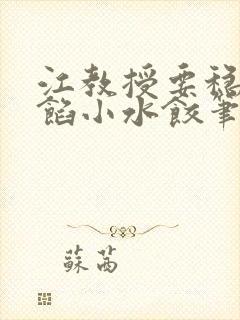 江教授要穩
餡小水餃筆
蘇茜